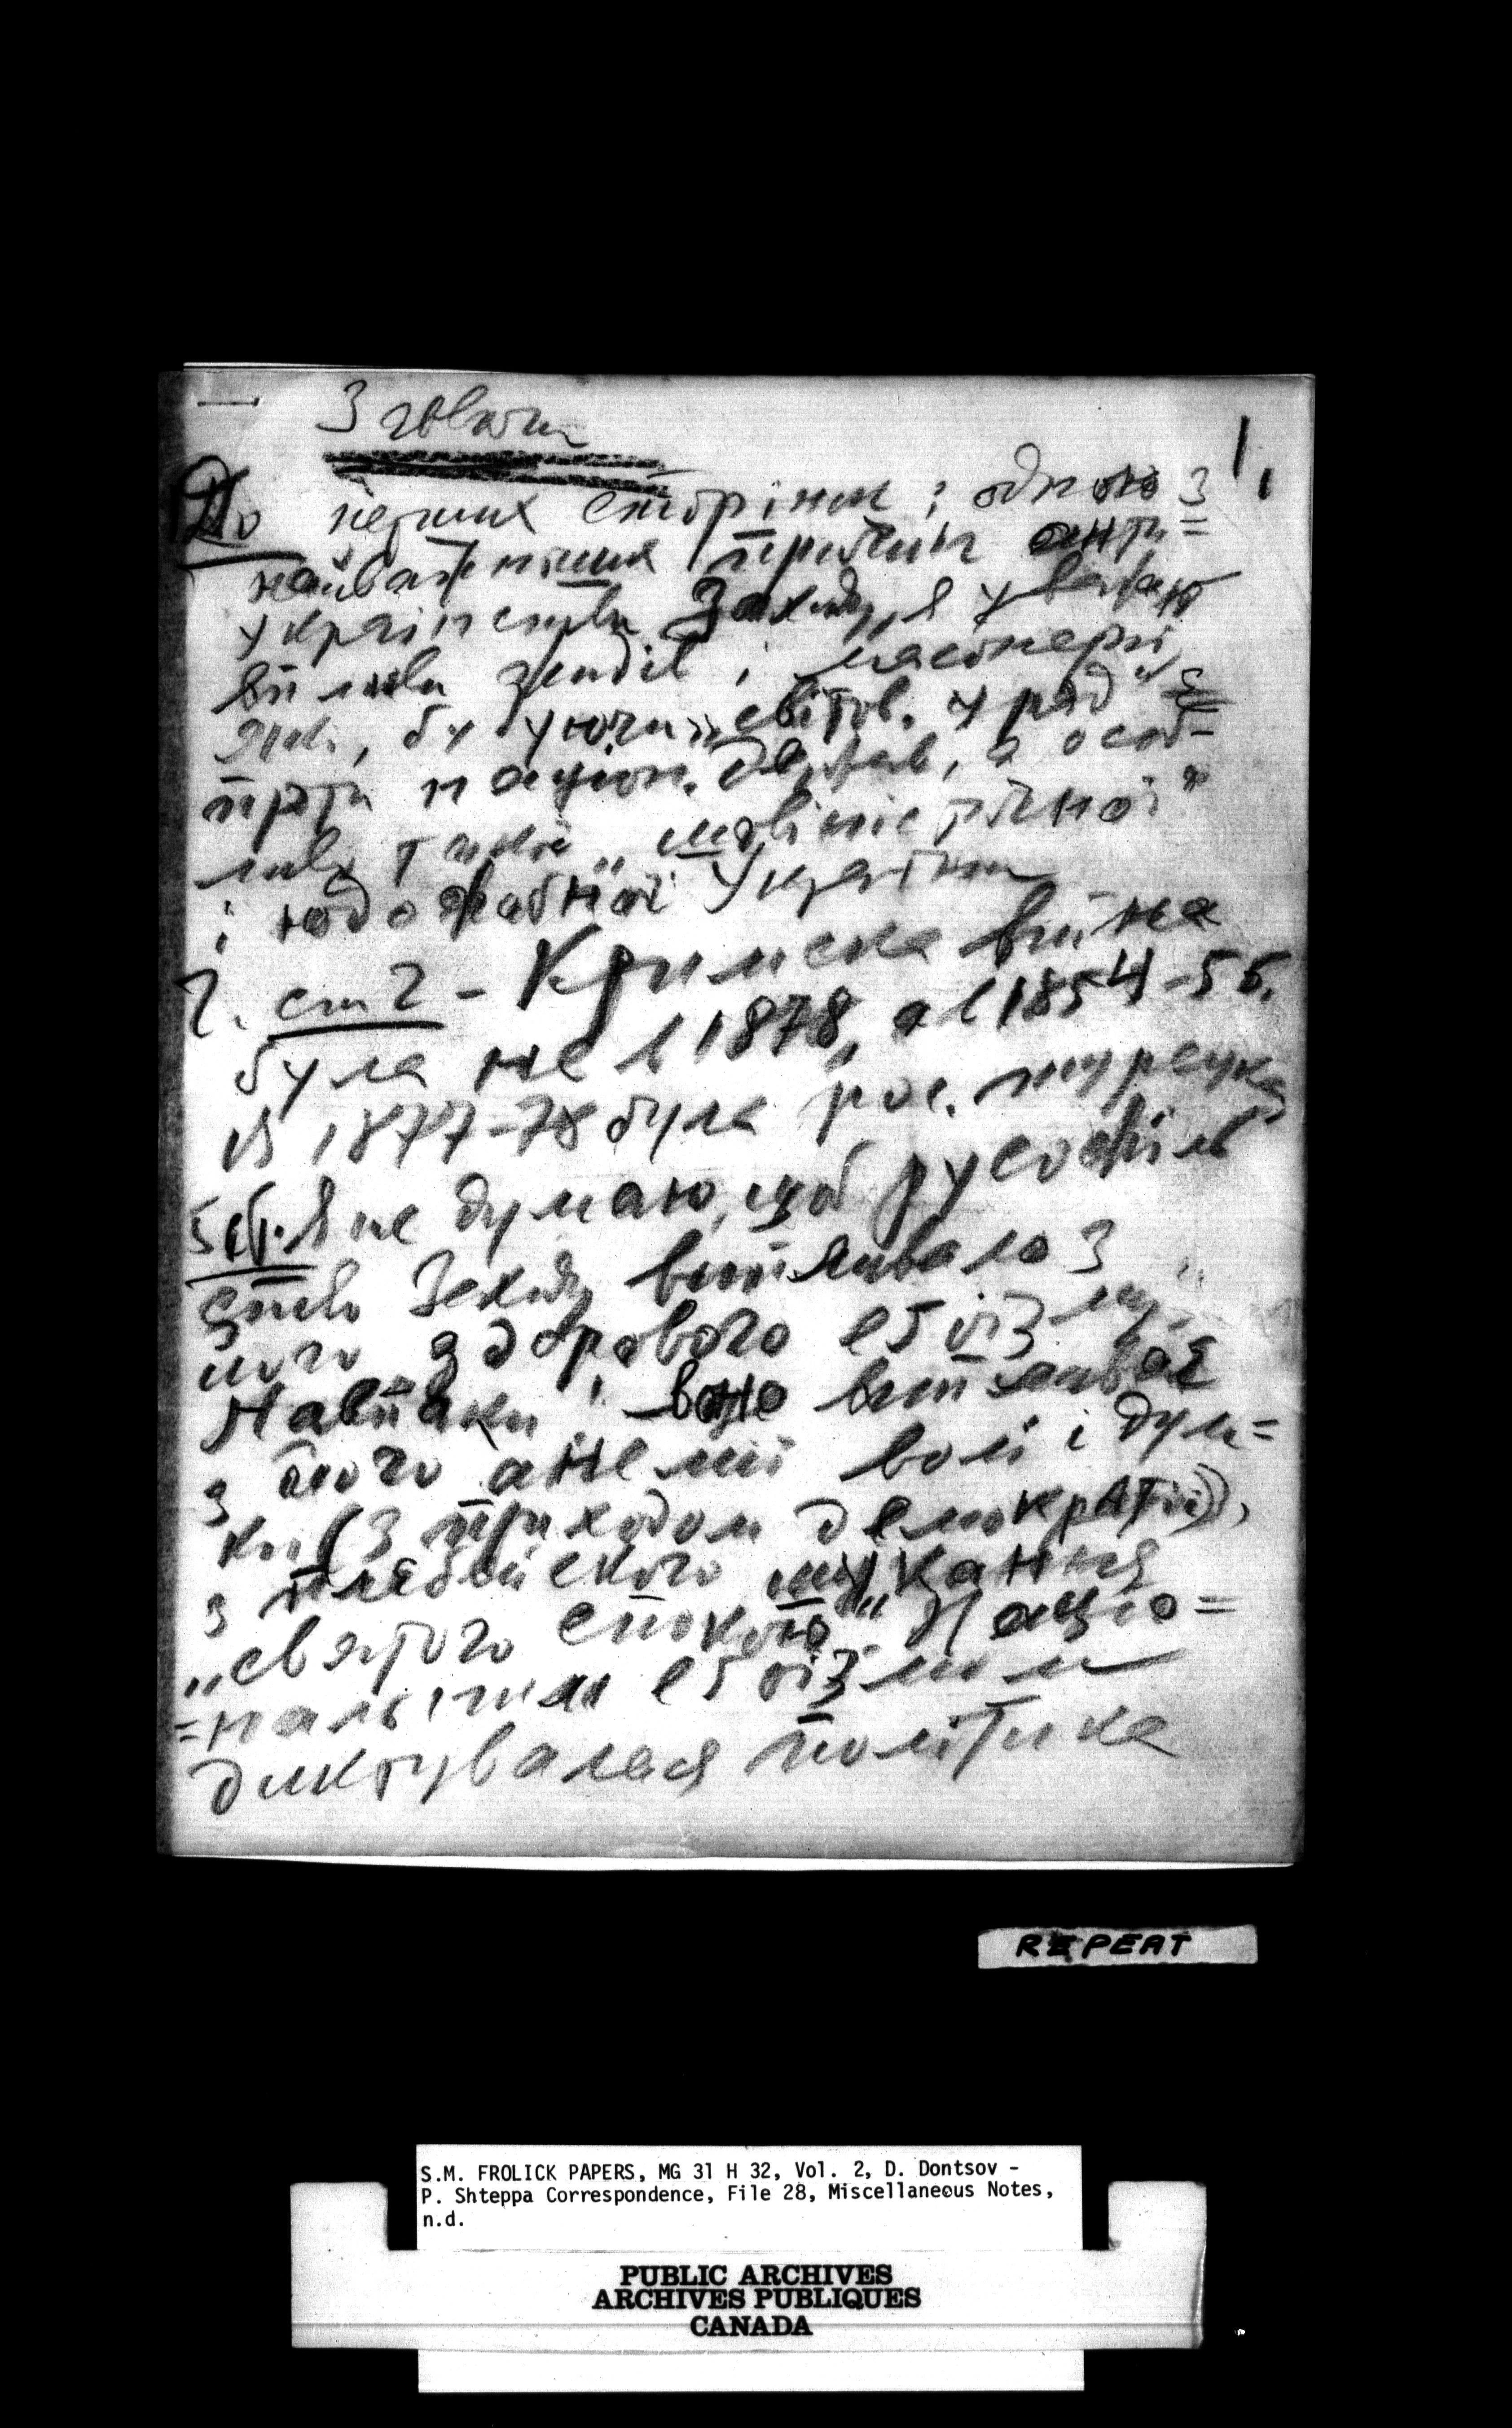 1.
До перших сторінок: одною з
найважніших причин анти=
українства Заходу, я уважаю
вплив жидів і масонерії,
яка, будуючи „світов. уряд" є
проти націон. держав, а особ-
ливо такої „
і юдожабної України
2. ст 2 - Кримска війна
була не в 1878, а в 1854-56.
В 1877-78 була рос. турецка
5 ст. Я не думаю, щоб русофіль
ство Заходу випливало з
його здорового егоізму,
Навпаки: воно випливає
з його анемії волі і дум=
ки (з приходом демократії),
з плебейского шукання
„святого спокою". Націо=
=нальним егоізмом
диктувалася політика
REPEAT
S.M. FROLICK PAPERS, MG 31 H 32, Vol. 2, D. Dontsov -
P. Shteppa Correspondence, File 28, Miscellaneous Notes,
n.d.
PUBLIC ARCHIVES
ARCHIVES PUBLIQUES
CANADA